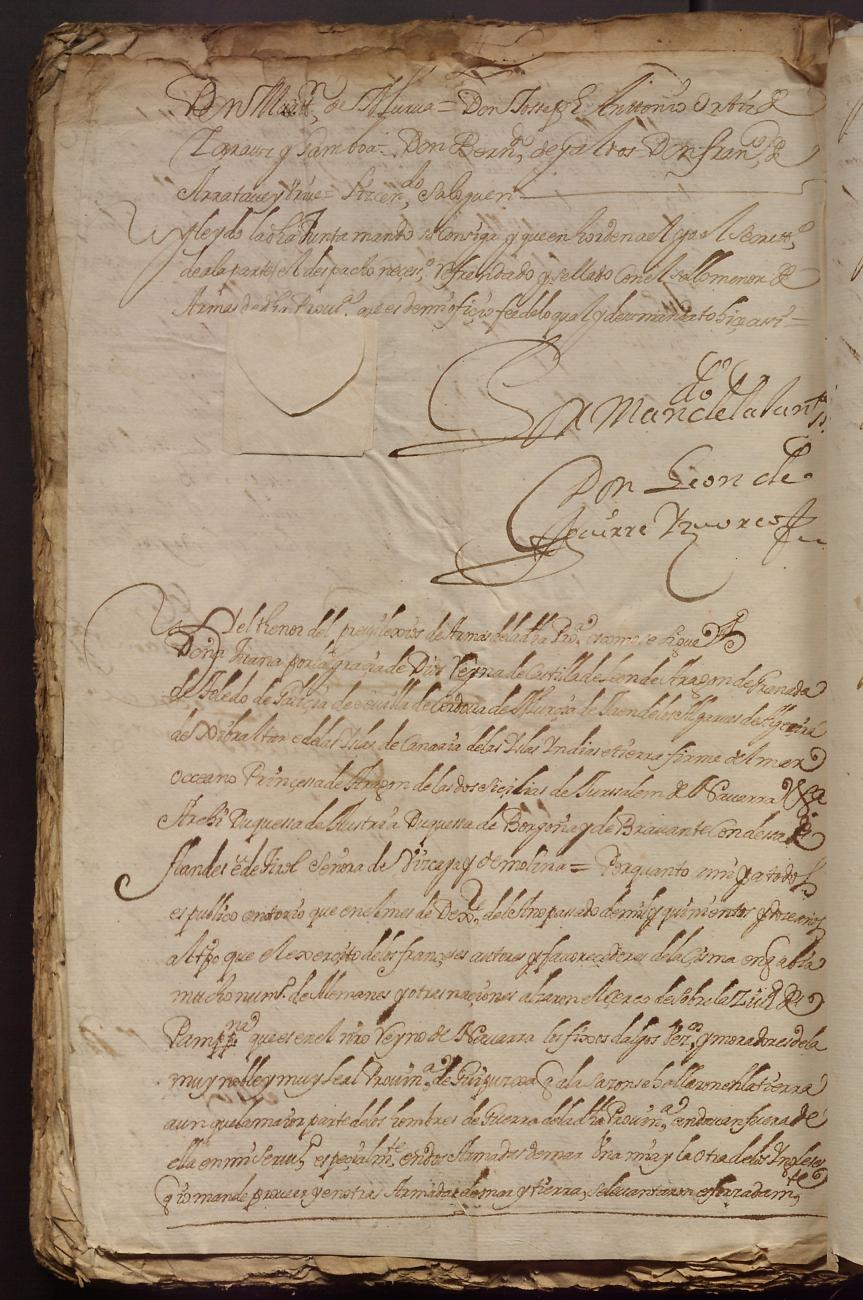 Don Martn de Murua = Don Josseph Anttonio Ortiz de
Zarauz y Gamboa = Don Bernº de Galdos Don Franº de
Arrataue y Vriue = Lizendº Saloguen
Y leydo la dha Junta mando se Consiga y que en horden a ello yo el Secrettº
de a la parte el despacho nezesº refrendado y sellado Con el sello menor de
Armas de dha Prouª que es de mi ofiçio fee de lo qual y de su mandato hiçe assi =
Por Mando de la Juntta
Don Leon de
Aguirre Zuurco
Y el thenor del preuilexios de Armas de la dha Proª es como se sigue
Doña Juana por la graçia de Dios Reyna de Castilla de Leon de Aragon de Grenada
de Toledo de Galiçia de seuilla de Cordoua de Murçia de Jaen de los Algarues de Algeçira
de Xibraltar e de las Yslas de Canaria de las Yslas Yndias e tierra firme del mar
oççeano Prinçessa de Aragon de las dos Siçilias de Jurusalem de Nauarra
Archi Duquessa de Austria Duquessa de Borgoña y de Brauante Condessa de
flandes e de Tirol Señora de Vizcaya y de molina = Por quanto a mi y a todos
es publico e notorio que en el mes de Dexe del Año passado de mil y quinientos y doze años
al tpo que el exerçito de los françeses autores y fauoreçedores de la Çisma en q abia
mucho numº de Alemanes y otras naçiones alzaron el çerco de sobre la Ziud de
Pampna que es en el nro Reyno de Nauarra los fixos dalgo Vezos y moradores de la
muy noble y muy leal Prouinª de Guipuzcoa q a la sazon se hallaron en la tierra
aunque la maior parte de los hombres de Guerra de la dha Prouinª andauan fuera de
ella en mi Seruº espeçialmte en dos Armadas de mar Una mia y la otra de los Yngleses
q io mande proueer y en otras Armadas de mar y tierra, se leuantaron esforzadamte